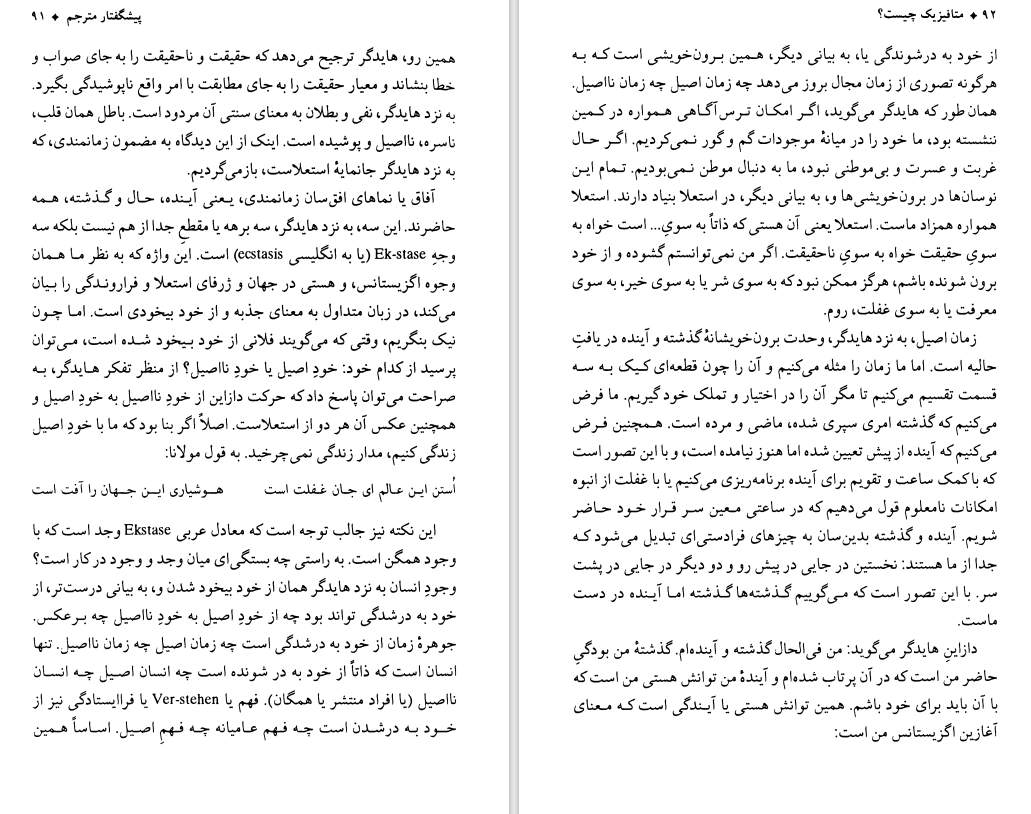 پیشگفتار مترجم ♦ ۹۱
همین رو، هایدگر ترجیح می‌دهد که حقیقت و ناحقیقت را به جای صواب و
خطا بنشاند و معیار حقیقت را به جای مطابقت با امر واقع ناپوشیدگی بگیرد.
به نزد هایدگر، نفی و بطلان به معنای سنتی آن مردود است. باطل همان قلب،
ناسره، نااصیل و پوشیده است. اینک از این دیدگاه به مضمون زمانمندی، که
به نزد هایدگر جانمایهٔ استعلاست، بازمی‌گردیم.
آفاق یا نماهای افق‌سان زمانمندی، یـعنی آیـنده، حـال و گـذشته، هـمه
حاضرند. این سه، به نزد هایدگر، سه برهه یا مقطعِ جدا از هم نیست بلکه سه
وجهِ Ek-stase (یا به انگلیسی ecstasis) است. این واژه که به نظر مـا هـمان
وجوه اگزیستانس، و هستی در جهان و ژرفای استعلا و فراروندگی را بیان
می‌کند، در زبان متداول به معنای جذبه و از خود بیخودی است. امـا چـون
نیک بنگریم، وقتی که می‌گویند فلانی از خود بیخود شـده است، مـی‌توان
پرسید از کدام خود: خودِ اصیل یا خودِ نااصیل؟ از منظر تفکر هـایدگر، بـه
صراحت می‌توان پاسخ داد که حرکت دازاین از خودِ نااصیل به خودِ اصیل و
همچنین عکس آن هر دو از استعلاست. اصلاً اگر بنا بود که ما با خودِ اصیل
زندگی کنیم، مدار زندگی نمی‌چرخید. به قول مولانا:
اُستن ایـن عـالم ای جـان غـفلت است هـوشیاری ایـن جـهان را آفت است
این نکته نیز جالب توجه است که معادل عربی Ekstase وجد است که با
وجود همگن است. به راستی چه بستگی‌ای میان وجد و وجود در کار است؟
وجودِ انسان به نزد هایدگر همان از خود بیخود شدن و، به بیانی درست‌تر، از
خود به درشدگی تواند بود چه از خودِ اصیل به خودِ نااصیل چه بـرعکس.
جوهرهٔ زمان از خود به درشدگی است چه زمان اصیل چه زمان نااصیل. تنها
انسان است که ذاتاً از خود به در شونده است چه انسان اصیل چـه انسـان
نااصیل (یا افراد منتشر یا همگان). فهم یا Ver-stehen یا فراایستادگی نیز از
خـود بـه درشـدن است چـه فـهم عـامیانه چـه فـهمِ اصـیل. اسـاساً هـمین
۹۲ ♦ متافیزیک چیست؟
از خود به درشوندگی یا، به بیانی دیگر، هـمین بـرون‌خویشی است کـه بـه
هرگونه تصوری از زمان مجال بروز می‌دهد چه زمان اصیل چه زمان نااصیل.
همان طور که هایدگر می‌گوید، اگـر امکـان تـرس‌آگـاهی هـمواره در کـمین
ننشسته بود، ما خود را در میانهٔ موجودات گم و گور نـمی‌کردیم. اگـر حـال
غربت و عسرت و بی‌موطنی نبود، ما به دنبال موطن نـمی‌بودیم. تـمام ایـن
نوسان‌ها در برون‌خویشی‌ها و، به بیانی دیگر، در استعلا بنیاد دارند. استعلا
همواره همزاد ماست. استعلا یعنی آن هستی که ذاتاً به سویِ... است خواه به
سویِ حقیقت خواه به سویِ ناحقیقت. اگر من نمی‌توانستم گشوده و از خود
برون شونده باشم، هرگز ممکن نبود که به سوی شر یا به سوی خیر، به سوی
معرفت یا به سوی غفلت، روم.
زمان اصیل، به نزد هایدگر، وحدت برون‌خویشانهٔ گذشته و آینده در یافتِ
حالیه است. اما ما زمان را مثله می‌کنیم و آن را چون قطعه‌ای کـیک بـه سـه
قسمت تقسیم می‌کنیم تا مگر آن را در اختیار و تملک خود گیریم. ما فرض
می‌کنیم که گذشته امری سپری شده، ماضی و مرده است. هـمچنین فـرض
می‌کنیم که آینده از پیش تعیین شده اما هنوز نیامده است، و با این تصور است
که با کمک ساعت و تقویم برای آینده برنامه‌ریزی می‌کنیم یا با غفلت از انبوه
امکانات نامعلوم قول می‌دهیم که در ساعتی مـعین سـر قـرار خـود حـاضر
شویم. آینده و گذشته بدین‌سان به چیزهای فرادستی‌ای تبدیل می‌شود کـه
جدا از ما هستند: نخستین در جایی در پیش رو و دو دیگر در جایی در پشت
سر. با این تصور است که مـی‌گوییم گـذشته‌ها گـذشته امـا آیـنده در دست
ماست.
دازاینِ هایدگر می‌گوید: من فی‌الحال گذشته و آینده‌ام. گذشتهٔ من بودگیِ
حاضر من است که در آن پرتاب شده‌ام و آیندهٔ من توانش هستی من است که
با آن باید برای خود باشم. همین توانش هستی یا آیـندگی است کـه مـعنای
آغازین اگزیستانس من است: